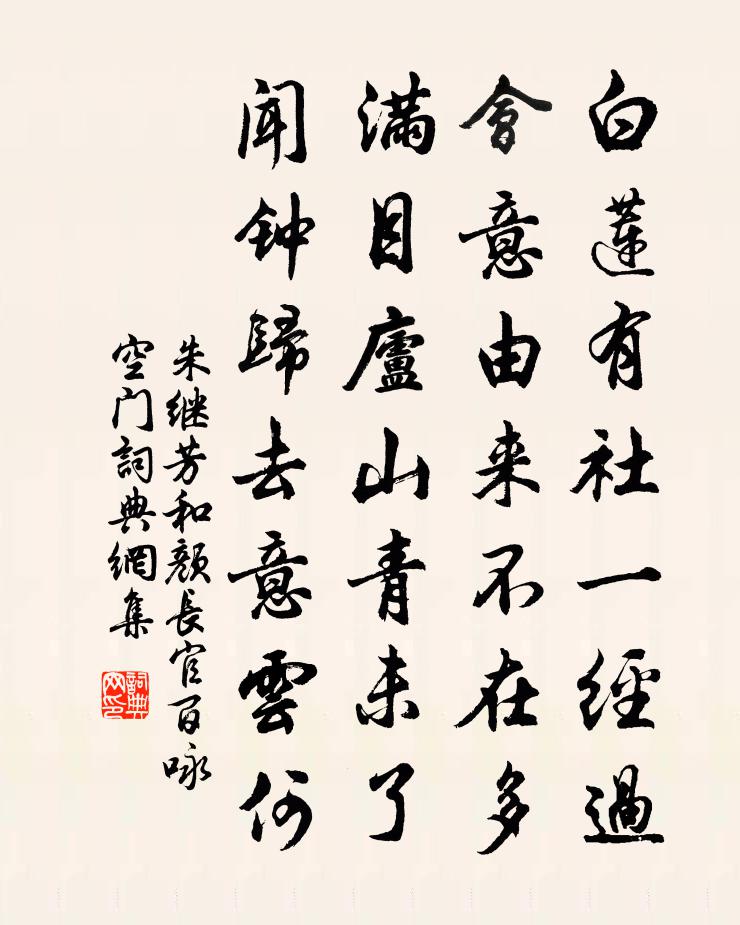 白蓮有社一經過
會意由来不在多
滿目廬山青未了
闻钟歸去意雲何
朱继芳和顏長官百咏
空门詞典網集
詞典网印